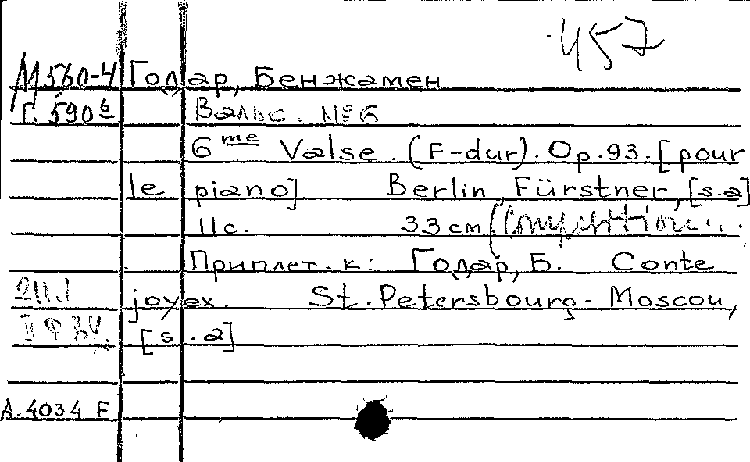 457
М560-4 Годар, Бенжамен
Г. 590б Вальс. №6
6 me Valse. (F-dur). Op. 93. [pour
le piano] Berlin, Fürstner, [s.a]
11 с. 33 см
Приплет. к: Годар, Б. Conte
joyex. St. Petersbourg-Moscou,
[s.a]
А.4034 F